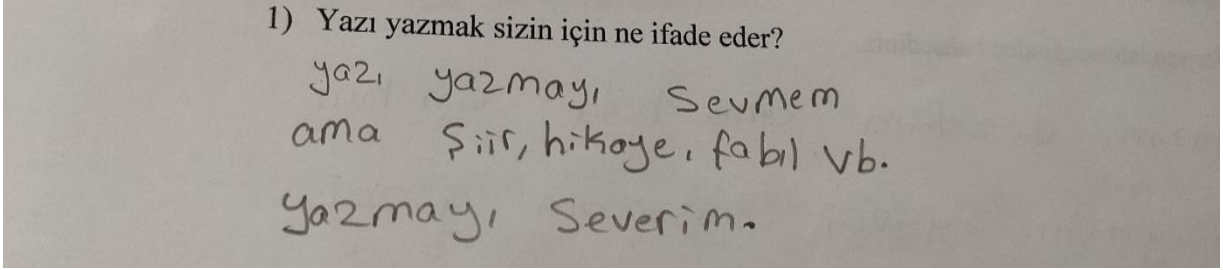 1) Yazı yazmak sizin için ne ifade eder?
yazı yazmayı sevmem
ama şiir, hikaye, fabıl vb.
yazmayı severim.